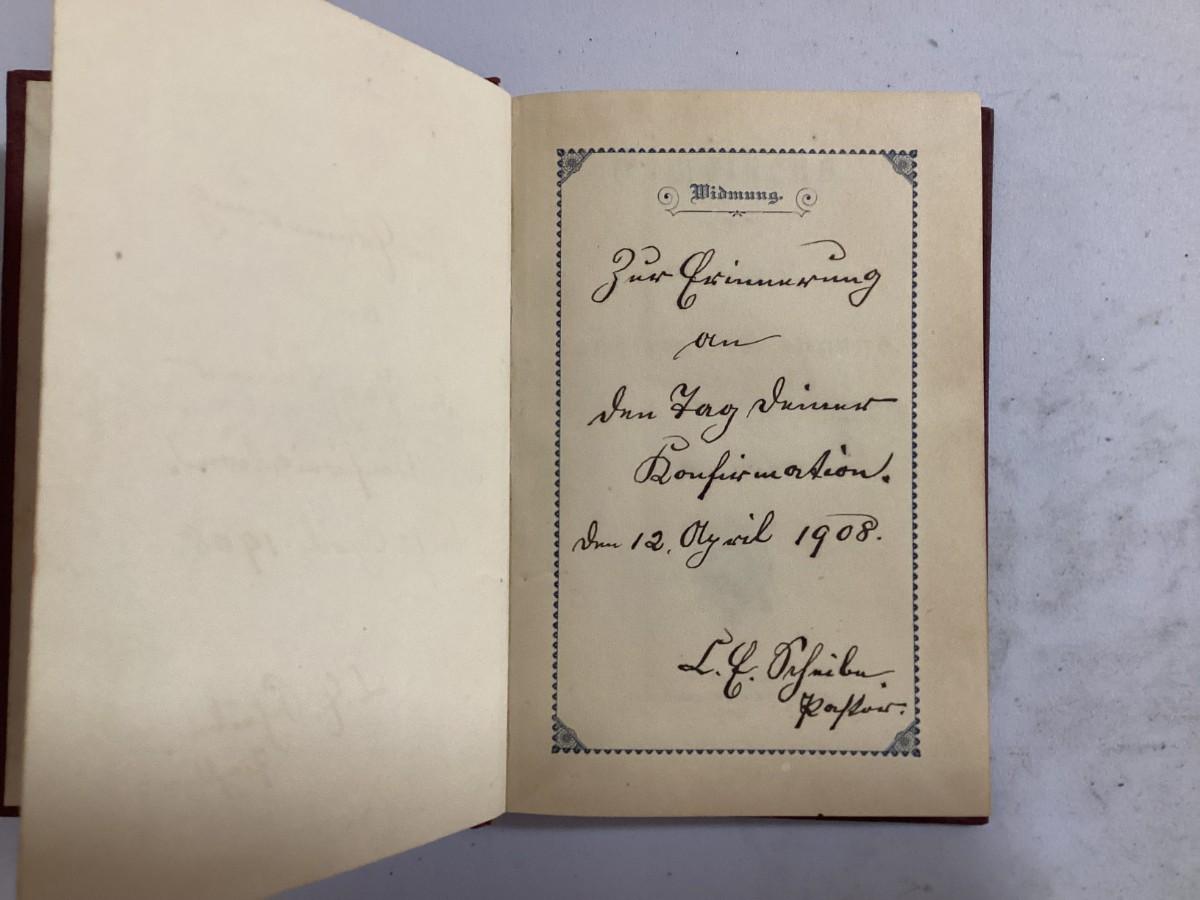 Widmung.
Zur Erinnerung
an
den Tag Deiner
Konfirmation.
Den 12. April 1908.
L. E. Scheibe.
Pastor.